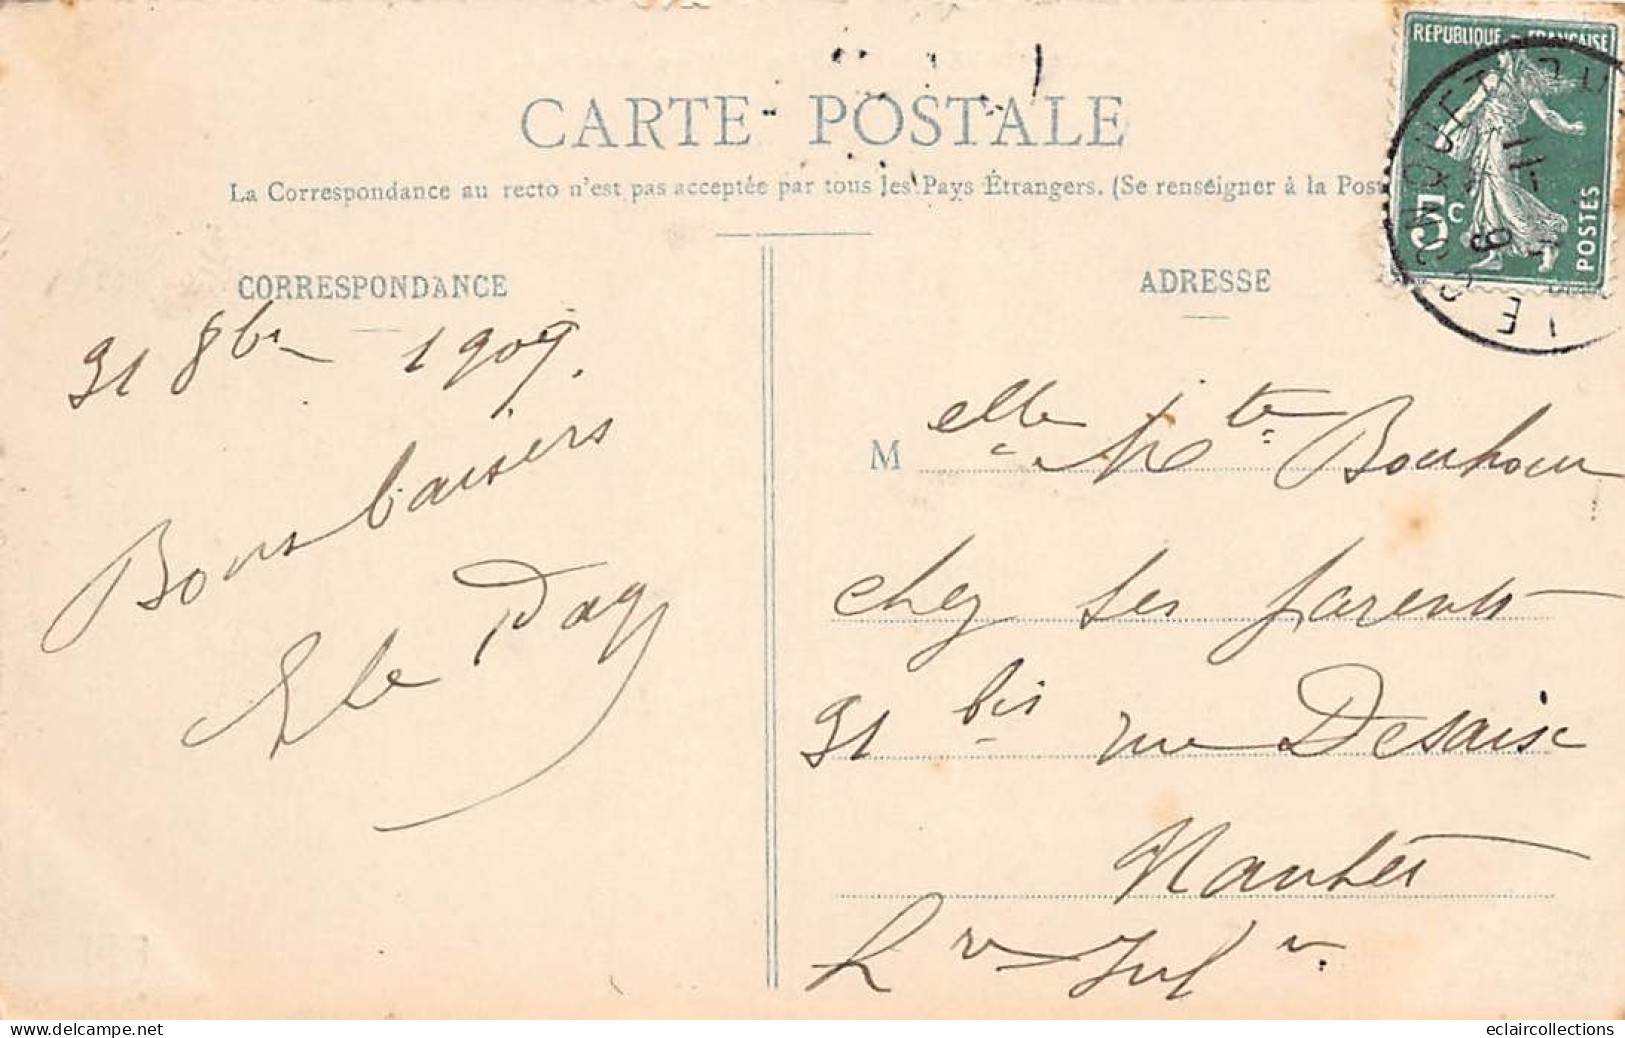 CARTE POSTALE
La Correspondance au recto n'est pas acceptée par tous les Pays Étrangers. (Se renseigner à la Post
RÉPUBLIQUE FRANÇAISE
5c
POSTES
CORRESPONDANCE
31 8bre 1909.
Bons baisers
ADRESSE
M elle Mte Bonhour
chez ses parents
31 bis rue Desaix
Nantes
Lre Infre
eclaircollections
www.delcampe.net